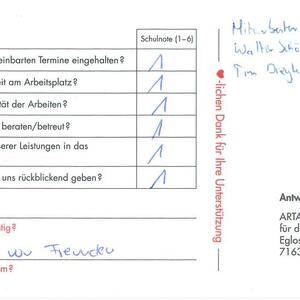 Schulnote (1–6)
einbarten Termine eingehalten?
1
eit am Arbeitsplatz?
1
tät der Arbeiten?
1
beraten/betreut?
1
serer Leistungen in das
1
uns rückblickend geben?
1
tig?
von Freunden
m?
-lichen Dank für Ihre Unterstützung
Mitarbeiter
Walter
Tim
Antw
ARTA
für d
Eglos
7163